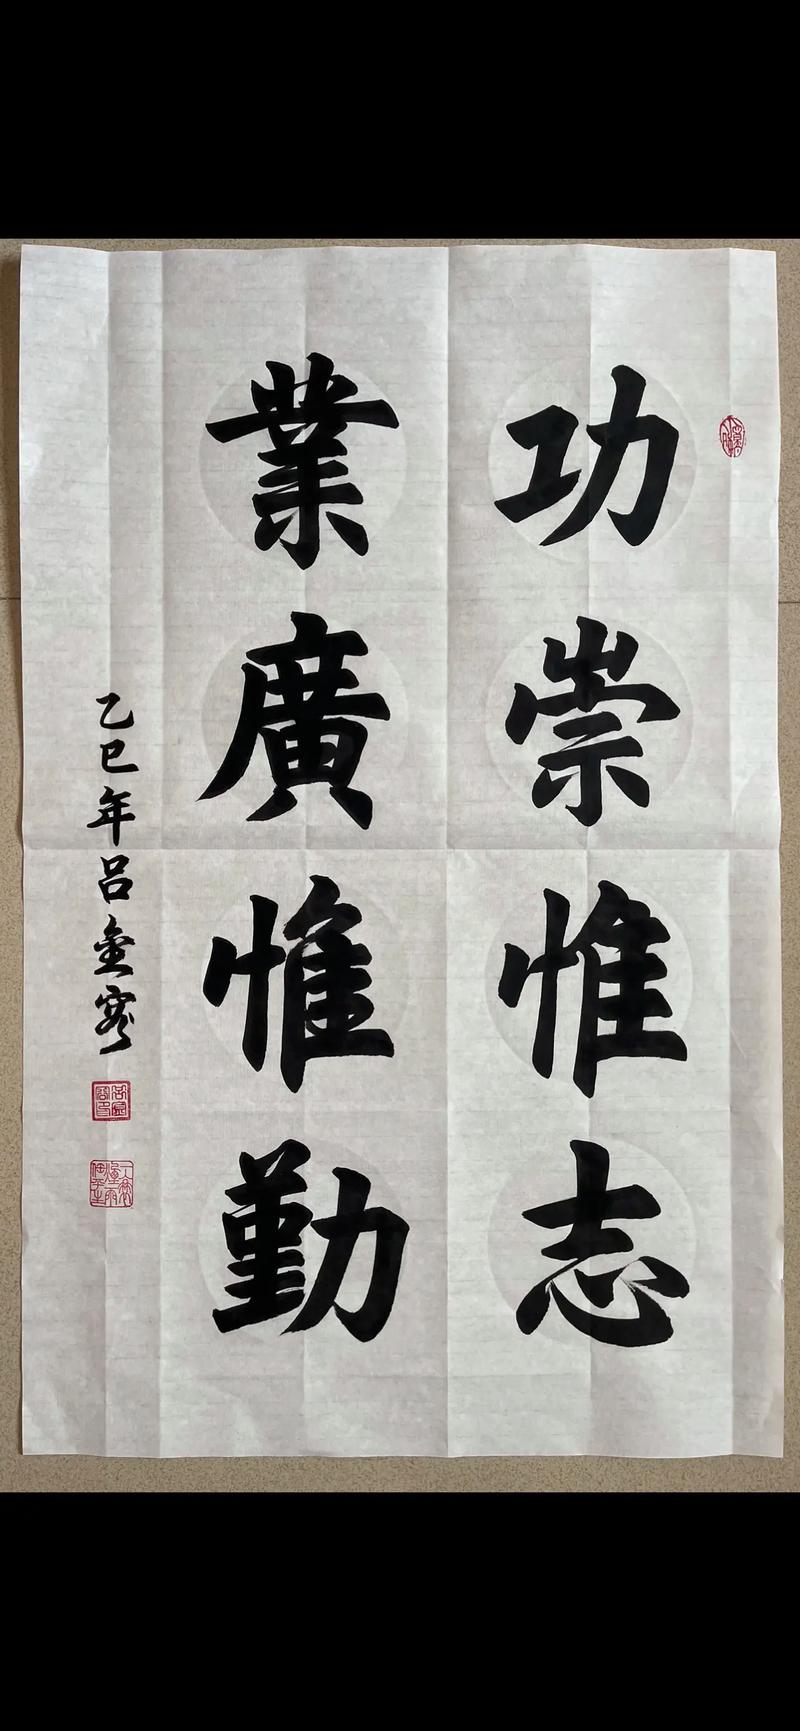 功崇惟志
業廣惟勤
乙巳年吕金